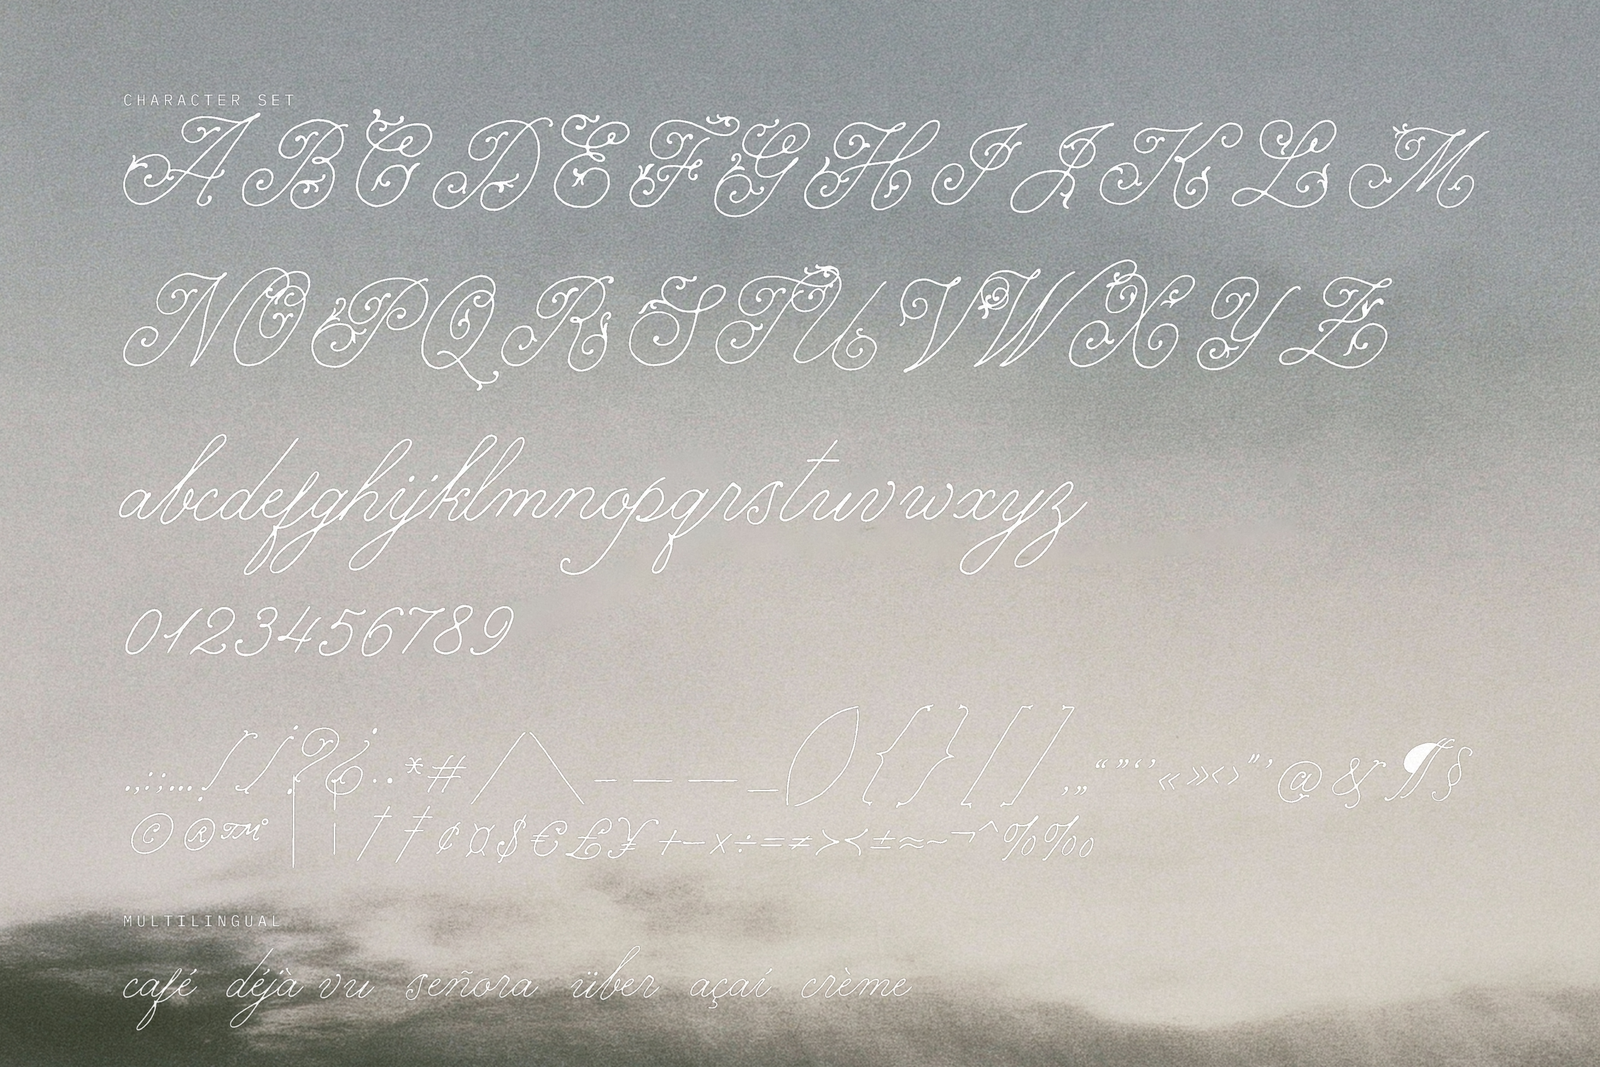 CHARACTER SET
A B C D E F G H I J K L M
N O P Q R S T U V W X Y Z
abcdefghijklmnopqrstuvwxyz
0123456789
.,:;…! ¡ ? ¿ · • * # / \ - – — _ ( ) { } [ ] ‚ „ “ ” ‘ ’ « » ‹ › " ' @ & ¶ §
© ® ™ ° | ¦ † ‡ ¢ ¤ $ € £ ¥ + − × ÷ = ≠ > < ± ≈ ~ ¬ ^ % ‰
MULTILINGUAL
café déjà vu señora über açaí crème